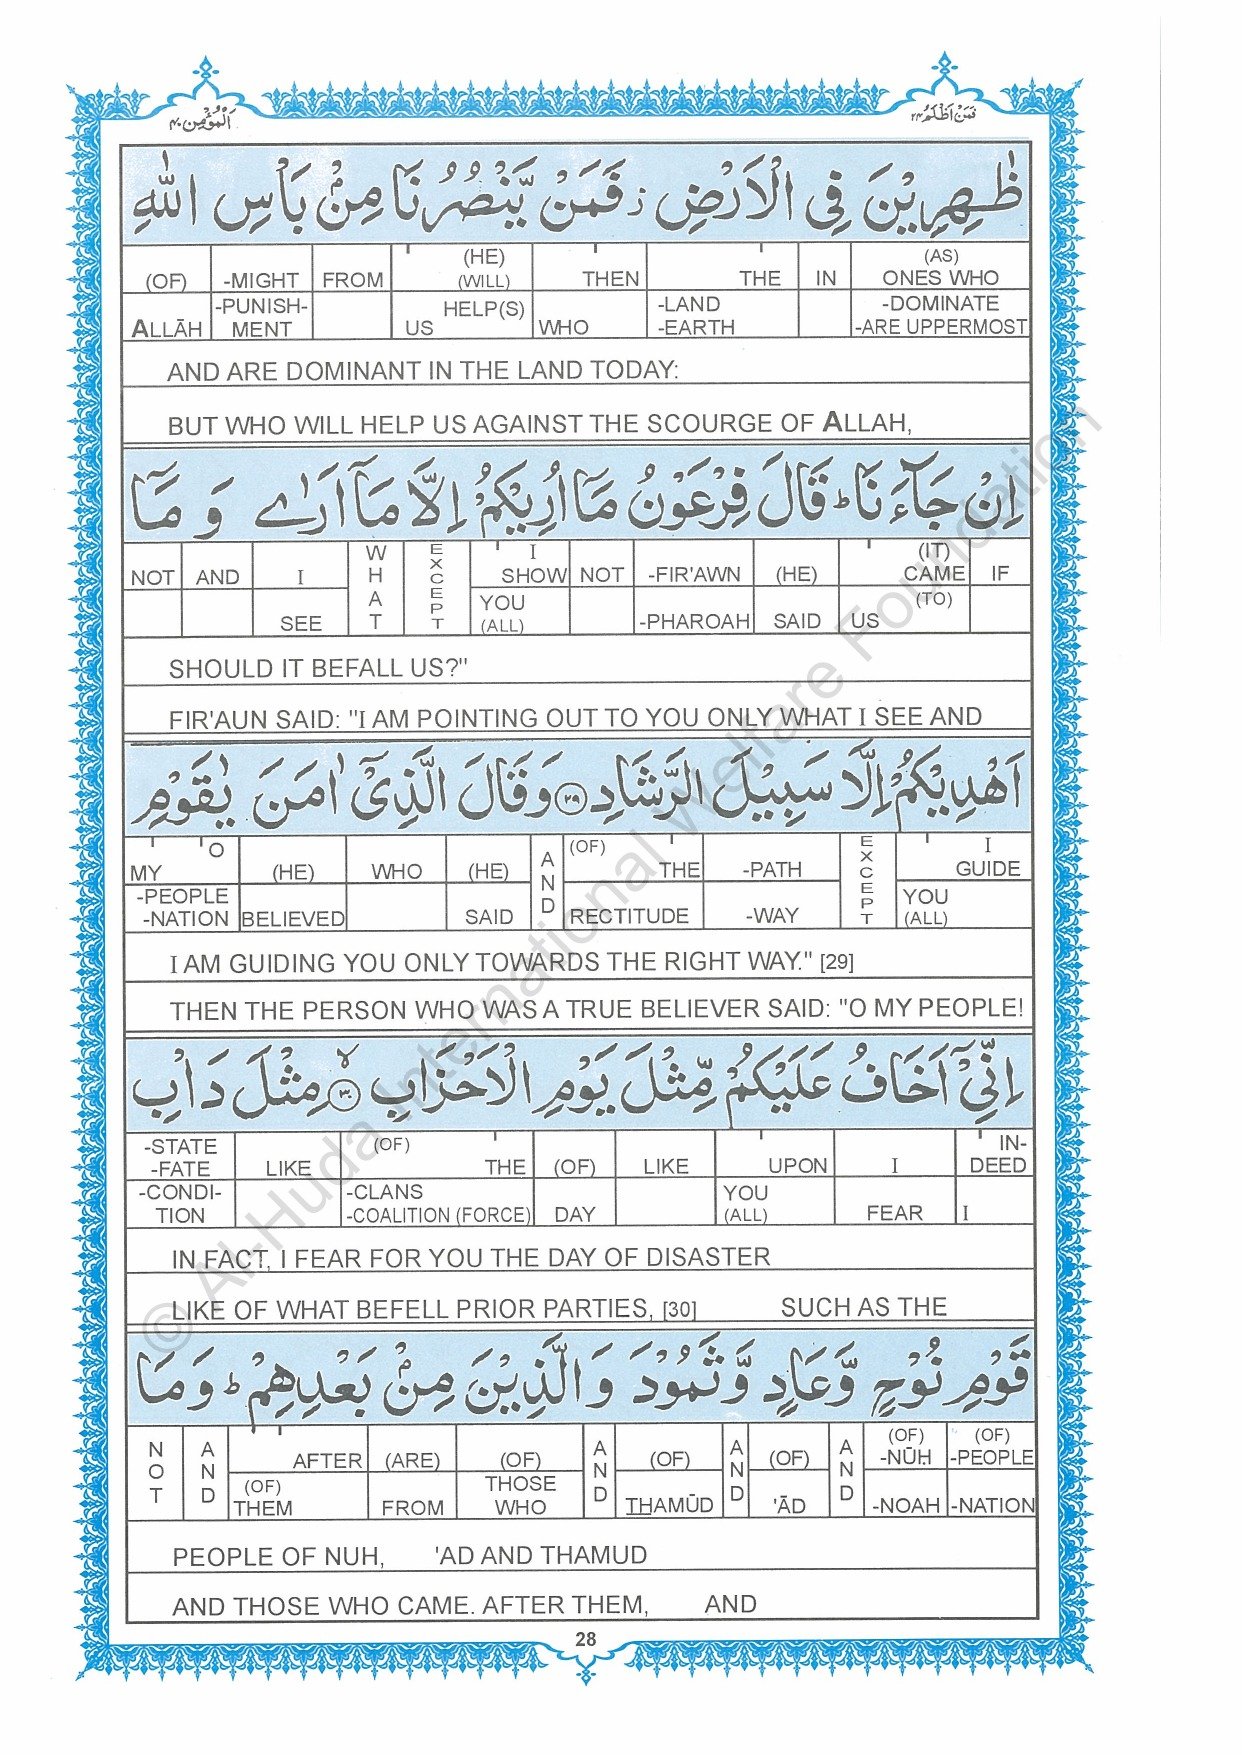 اَلْمُؤْمِن ٤٠
فَمَنْ اَظْلَمُ ٢٤
ظٰهِرِيْنَ فِي الْاَرْضِ ز فَمَنْ يَّنْصُرُنَا مِنْۢ بَاْسِ اللّٰهِ
(OF) -MIGHT FROM (HE) (WILL) THEN THE IN (AS) ONES WHO
ALLĀH -PUNISH-MENT US HELP(S) WHO -LAND -EARTH -DOMINATE -ARE UPPERMOST
AND ARE DOMINANT IN THE LAND TODAY:
BUT WHO WILL HELP US AGAINST THE SCOURGE OF ALLAH,
اِنْ جَآءَنَا ط قَالَ فِرْعَوْنُ مَآ اُرِيْكُمْ اِلَّا مَآ اَرٰى وَ مَآ
NOT AND I WHAT EXCEPT I SHOW NOT -FIR'AWN (HE) (IT) CAME IF
SEE YOU (ALL) -PHAROAH SAID US (TO)
SHOULD IT BEFALL US?"
FIR'AUN SAID: "I AM POINTING OUT TO YOU ONLY WHAT I SEE AND
اَهْدِيْكُمْ اِلَّا سَبِيْلَ الرَّشَادِ ٢٩ وَقَالَ الَّذِيْٓ اٰمَنَ يٰقَوْمِ
MY O (HE) WHO (HE) AND (OF) THE -PATH EXCEPT I GUIDE
-PEOPLE -NATION BELIEVED SAID RECTITUDE -WAY YOU (ALL)
I AM GUIDING YOU ONLY TOWARDS THE RIGHT WAY." [29]
THEN THE PERSON WHO WAS A TRUE BELIEVER SAID: "O MY PEOPLE!
اِنِّيْٓ اَخَافُ عَلَيْكُمْ مِّثْلَ يَوْمِ الْاَحْزَابِ ٣٠ لا مِثْلَ دَاْبِ
-STATE -FATE LIKE (OF) THE (OF) LIKE UPON I IN-DEED
-CONDI-TION -CLANS -COALITION (FORCE) DAY YOU (ALL) FEAR I
IN FACT, I FEAR FOR YOU THE DAY OF DISASTER
LIKE OF WHAT BEFELL PRIOR PARTIES, [30] SUCH AS THE
قَوْمِ نُوْحٍ وَّعَادٍ وَّثَمُوْدَ وَالَّذِيْنَ مِنْۢ بَعْدِهِمْ ط وَمَا
NOT AND AFTER (ARE) (OF) AND (OF) AND (OF) AND (OF) -NŪH (OF) -PEOPLE
(OF) THEM FROM THOSE WHO THAMŪD 'ĀD -NOAH -NATION
PEOPLE OF NUH, 'AD AND THAMUD
AND THOSE WHO CAME. AFTER THEM, AND
28
© Al-Huda International Welfare Foundation